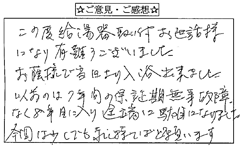 ☆ご意見・ご感想☆
この度給湯器取付お世話様
になり有難うございました
お蔭様で当日より入浴出来ました
以前のは7年間の保証期無事故障
なく8年目に入り途端に駄目になりました
今回は少しでも永く持てばと思います